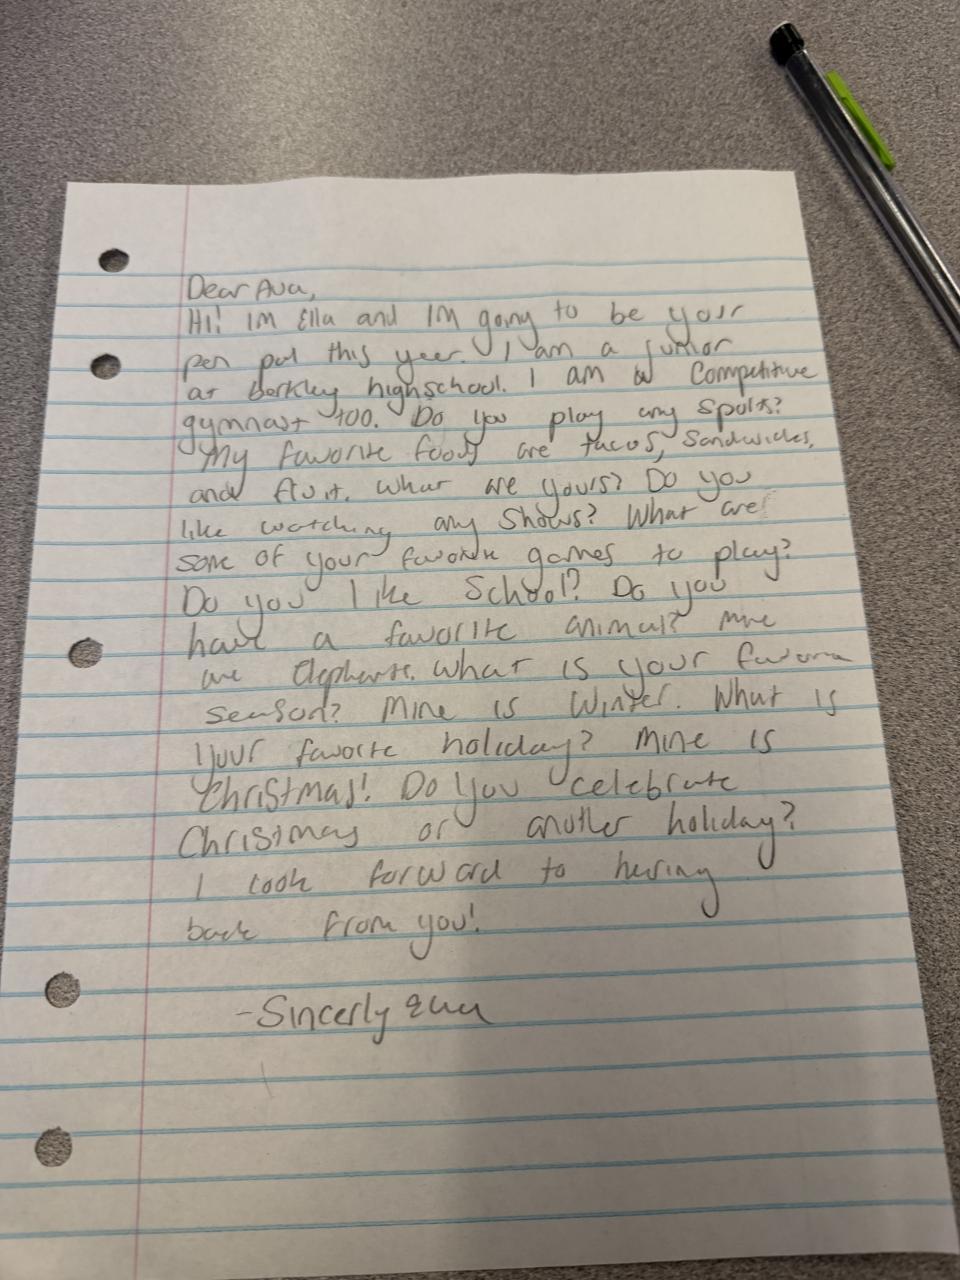 Dear Ava,
Hi! Im Ella and Im going to be your
pen pal this year. I am a junior
at berkley highschool. I am a competitive
gymnast too. Do you play any sports?
My favorite foods are tacos, sandwiches,
and fruit. What are yours? Do you
like watching any shows? What are
some of your favorite games to play?
Do you like School? Do you
have a favorite animal? Mine
are Elephants. What is your favorite
season? Mine is Winter. What is
your favorite holiday? Mine is
Christmas! Do you celebrate
Christmas or another holiday?
I look forward to hering
back from you!
-Sincerly Ella